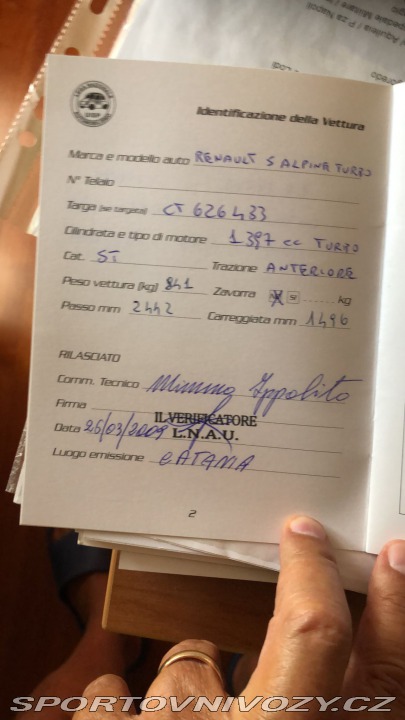 Aquileia / P.za Napoli
Identificazione della Vettura
Marca e modello auto RENAULT 5 ALPINE TURBO
N° Telaio
Targa (se targata) CT 626433
Cilindrata e tipo di motore 1397 cc TURBO
Cat. ST Trazione ANTERIORE
Peso vettura (kg) 841 Zavorra NO SI ...... kg
Passo mm 2442 Carreggiata mm 1496
RILASCIATO
Comm. Tecnico Mimmo Ippolito
Firma
IL VERIFICATORE
Data 26/03/2009 L.N.A.U.
Luogo emissione CATANIA
2
SPORTOVNIVOZY.CZ